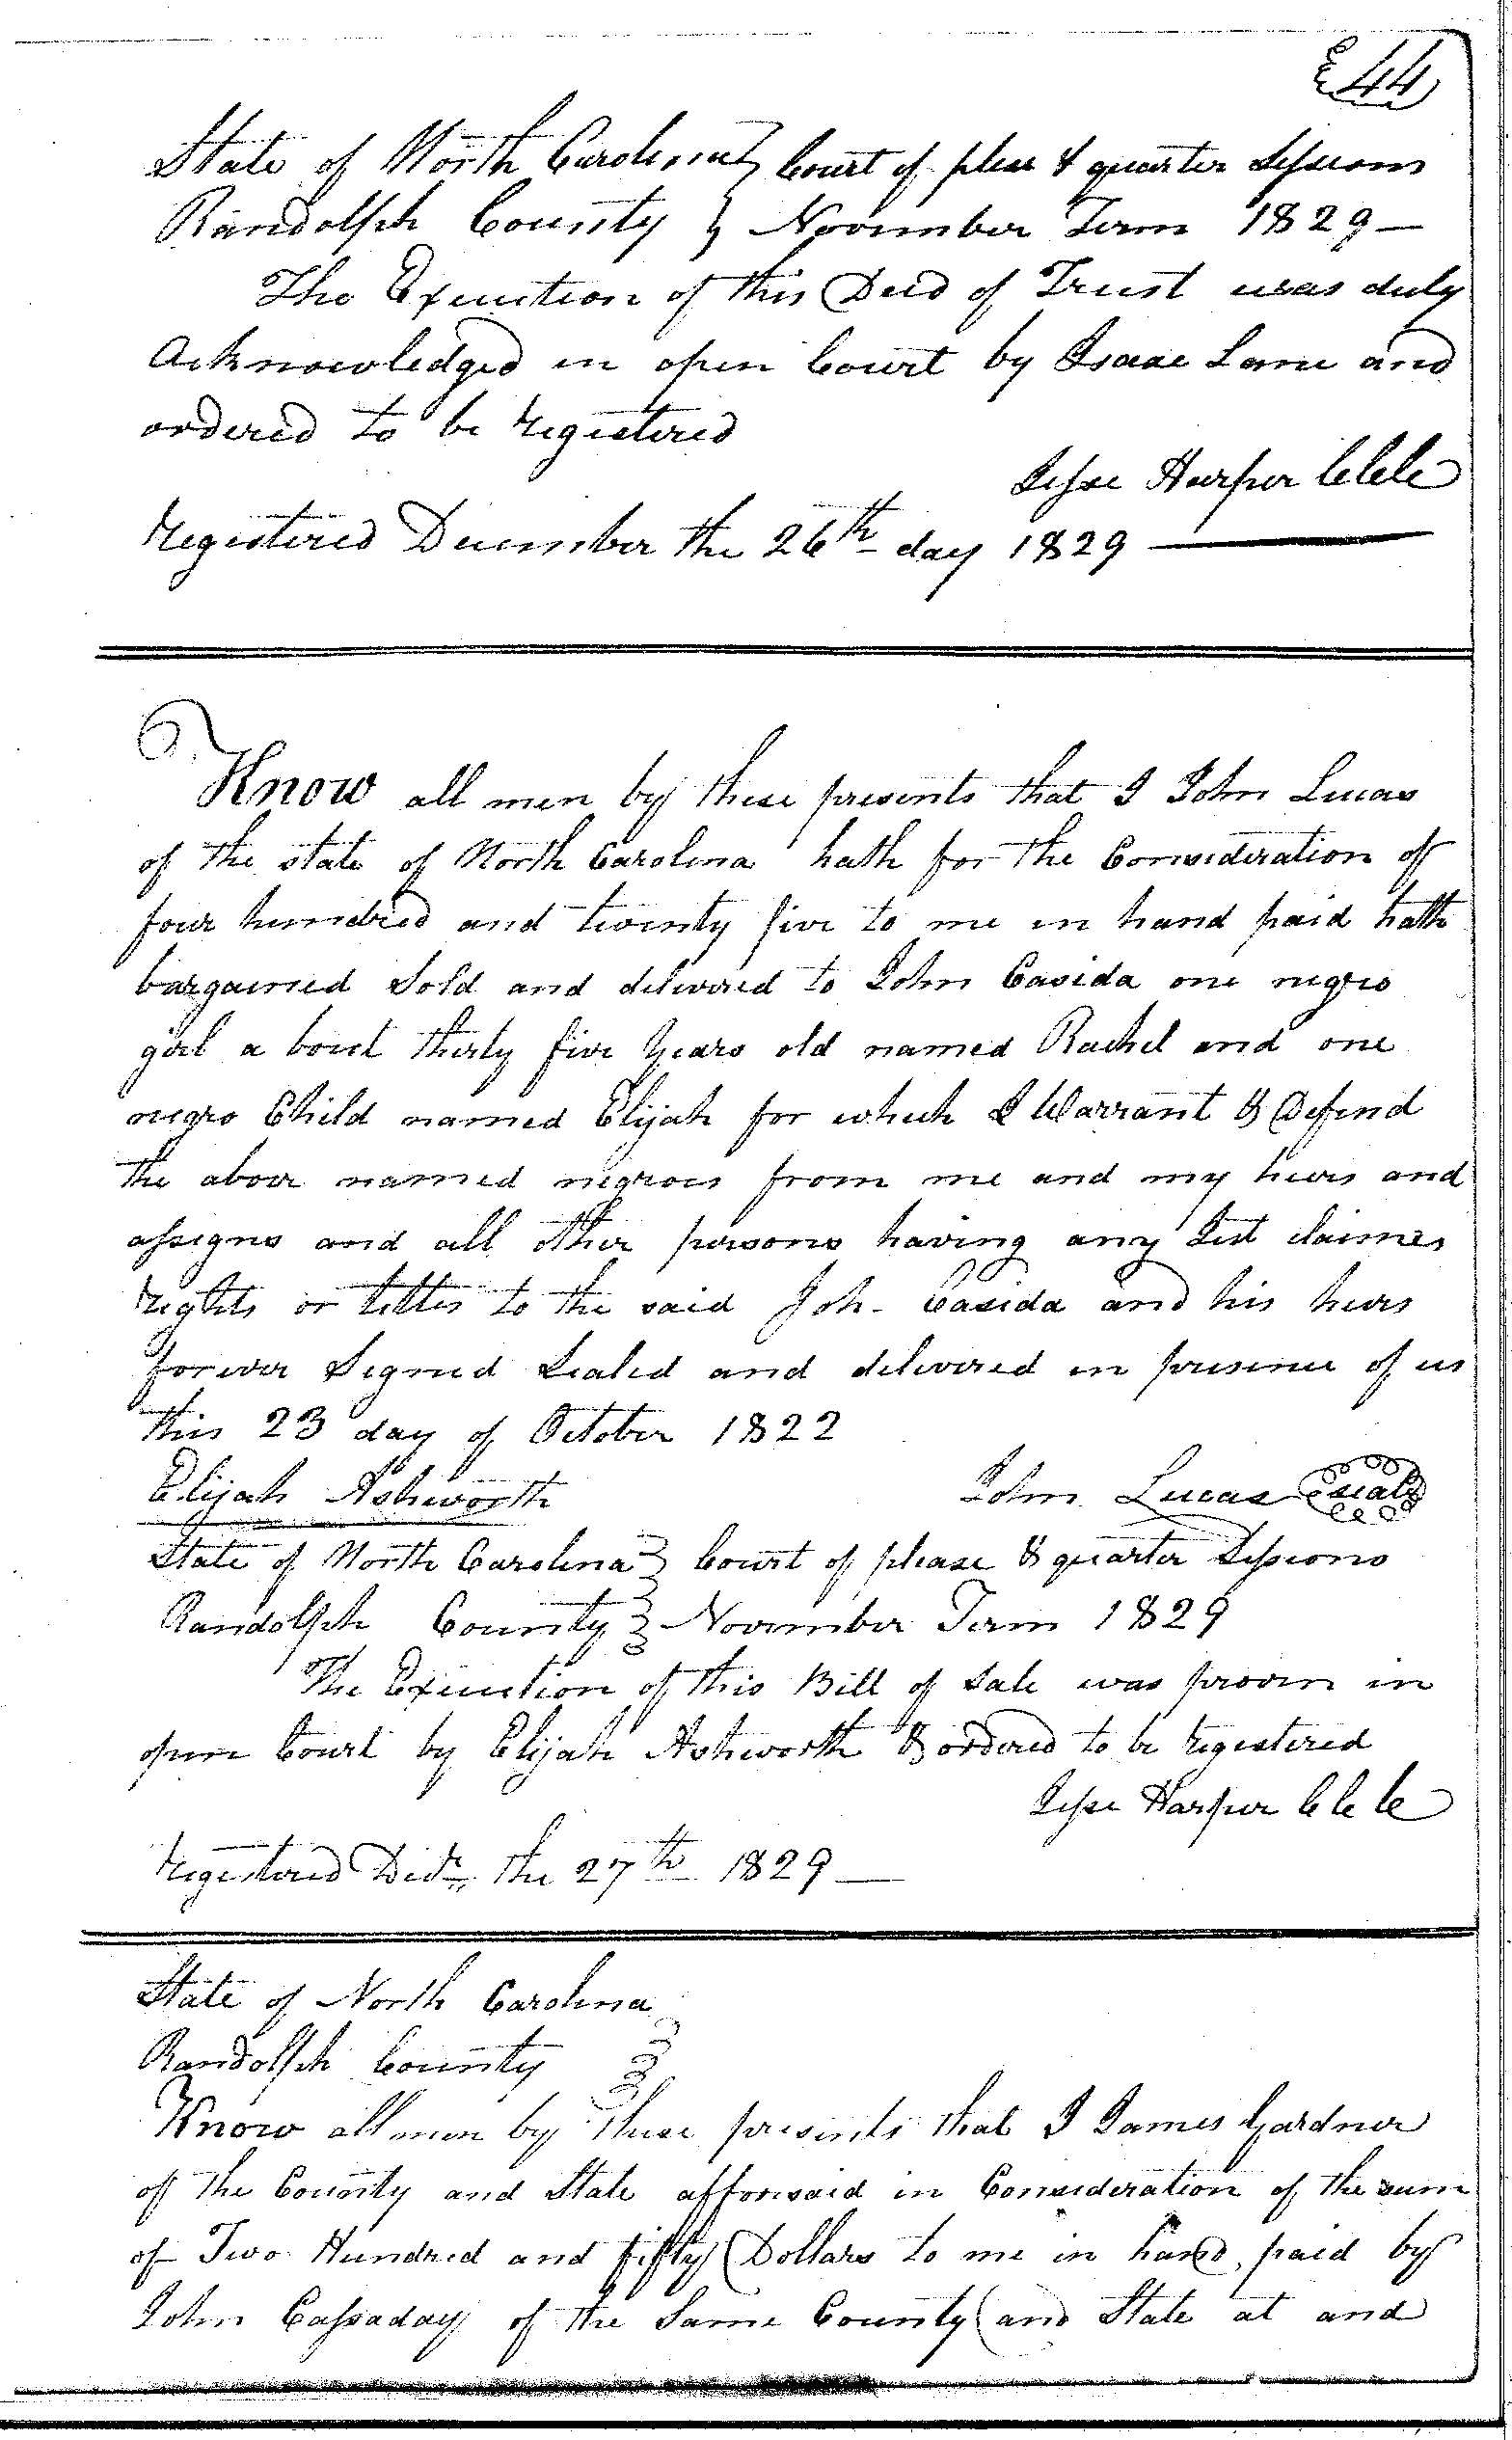 44
State of North Carolina } Court of pleas & quarter Sessions
Randolph County } November Term 1829 —
The Execution of this Deed of Trust was duly
Acknowledged in open Court by Isaac Lane and
ordered to be registered
Jesse Harper CCC
registered December the 26th day 1829 —
Know all men by these presents that I John Lucas
of the state of North Carolina hath for the Consideration of
four hundred and twenty five to me in hand paid hath
bargained Sold and delivered to John Casida one negro
girl a bout thirty five years old named Rachel and one
negro Child named Elijah for which I Warrant & Defend
the above named negroes from me and my heirs and
assigns and all other persons having any Just claimes
rights or tittles to the said Joh- Casida and his heirs
forever Signed Sealed and delivered in presence of us
this 23 day of October 1822
Elijah Ashworth John Lucas seal
State of North Carolina } Court of please & quarter Sessions
Randolph County } November Term 1829
The Execution of this Bill of Sale was proven in
open Court by Elijah Ashworth & ordered to be registered
Jesse Harper CCC
registered Decr. the 27th 1829 —
State of North Carolina
Randolph County }
Know all men by these presents that I James Gardner
of the County and State afforesaid in Consideration of the sum
of Two Hundred and fifty Dollars to me in hand, paid by
John Cassaday of the Same County and State at and